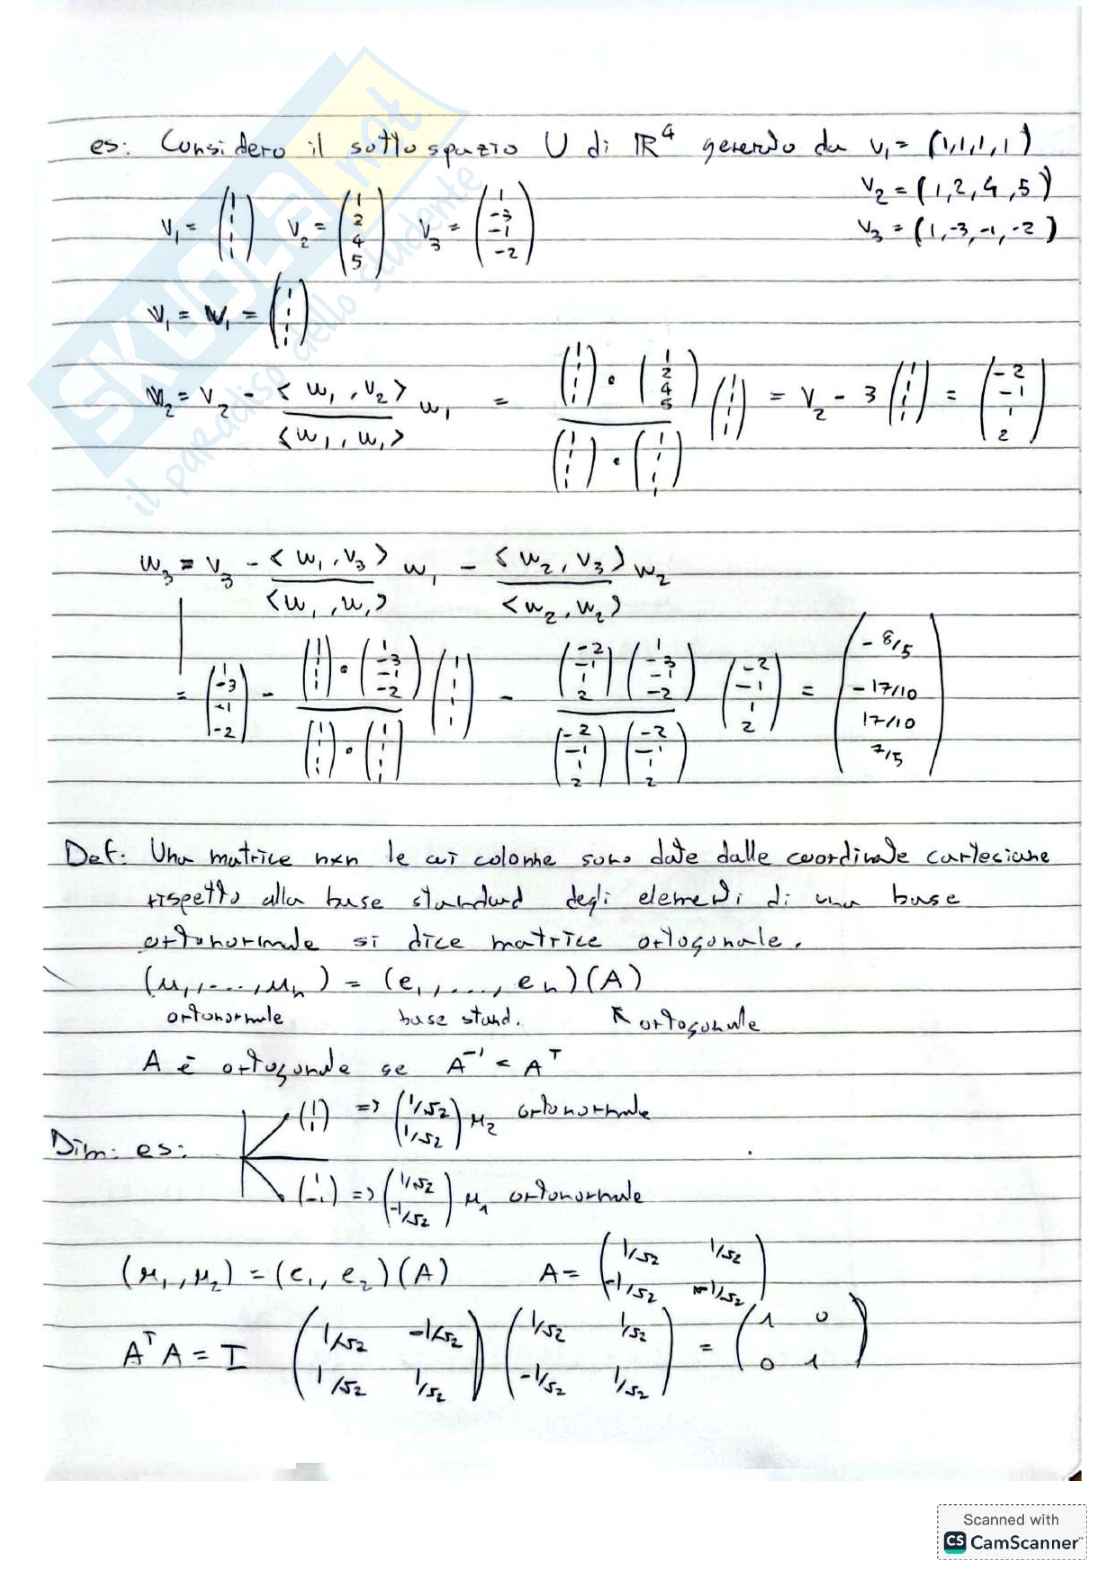 es: Considero il sottospazio U di ℝ⁴ generato da v₁ = (1,1,1,1)
v₂ = (1,2,4,5)
v₃ = (1,-3,-1,-2)
v₁ = (1 1 1 1) v₂ = (1 2 4 5) v₃ = (1 -3 -1 -2)
v₁ = w₁ = (1 1 1 1)
w₂ = v₂ - <w₁, v₂> / <w₁, w₁> w₁ = (1 1 1 1) • (1 2 4 5) / (1 1 1 1) • (1 1 1 1) (1 1 1 1) = v₂ - 3 (1 1 1 1) = (-2 -1 1 2)
w₃ = v₃ - <w₁, v₃> / <w₁, w₁> w₁ - <w₂, v₃> / <w₂, w₂> w₂
= (1 -3 -1 -2) - (1 1 1 1) • (1 -3 -1 -2) / (1 1 1 1) • (1 1 1 1) (1 1 1 1) - (-2 -1 1 2) (1 -3 -1 -2) / (-2 -1 1 2) (-2 -1 1 2) (-2 -1 1 2) = (-8/5 -17/10 17/10 7/5)
Def: Una matrice nxn le cui colonne sono date dalle coordinate cartesiane
rispetto alla base standard degli elementi di una base
ortonormale si dice matrice ortogonale.
(μ₁, ..., μₙ) = (e₁, ..., eₙ)(A)
ortonormale base stand. ↖ ortogonale
A è ortogonale se A⁻¹ = Aᵀ
(1 1) => (1/√2 1/√2) μ₂ ortonormale
Dim: es:
(1 -1) => (1/√2 -1/√2) μ₁ ortonormale
(μ₁, μ₂) = (e₁, e₂)(A) A = (1/√2 1/√2 -1/√2 -1/√2)
AᵀA = I (1/√2 -1/√2 1/√2 1/√2) (1/√2 1/√2 -1/√2 1/√2) = (1 0 0 1)
SKUOLA.net
il paradiso dello studente
Scanned with
CS CamScanner